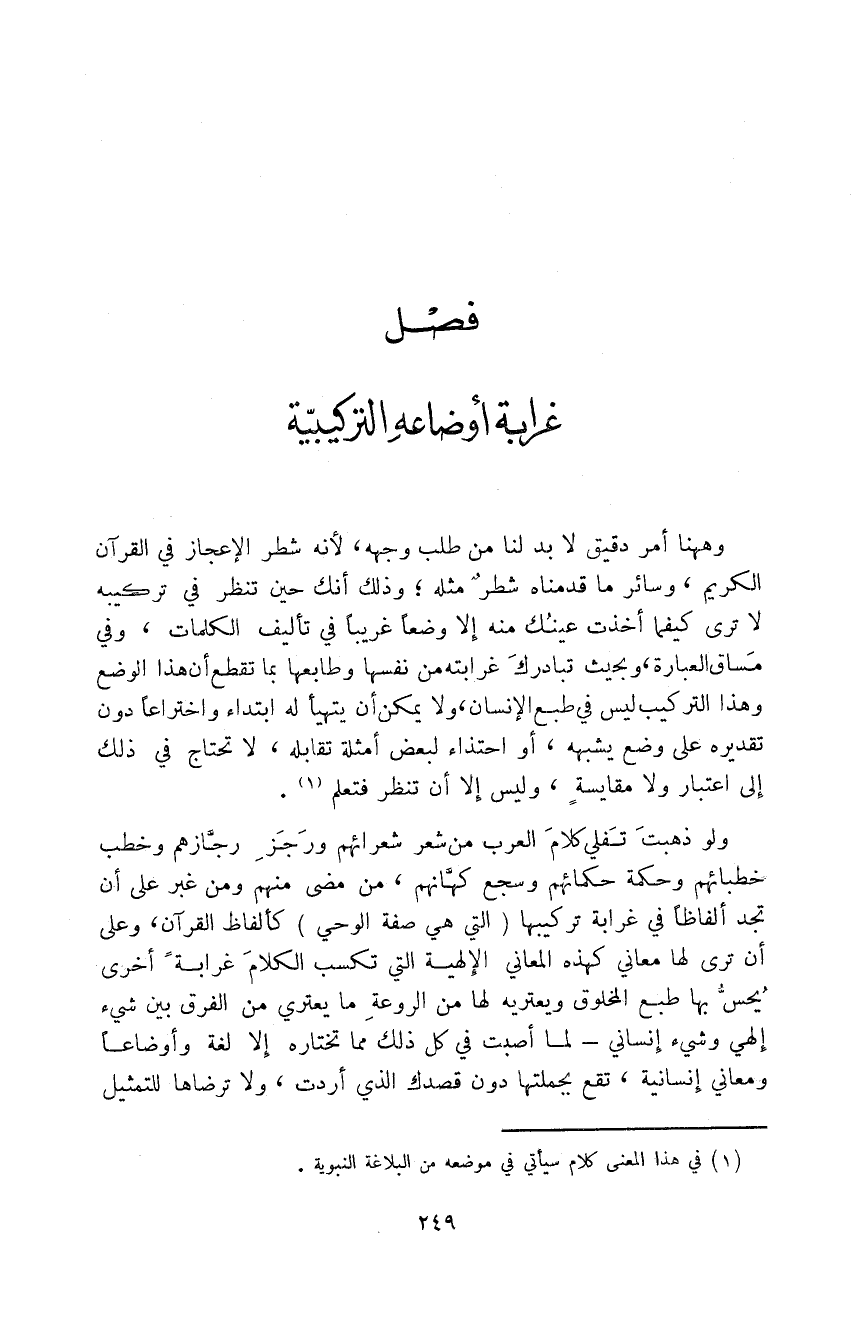 فصْل
غرابة أوضاعهِ التركيبيّة
وههنا أمر دقيق لا بد لنا من طلب وجهه، لأنه شطر الإعجاز في القرآن
الكريم ، وسائر ما قدمناه شطرٌ مثله ؛ وذلك أنك حين تنظر في تركيبه
لا ترى كيفما أخذت عينُك منه إلا وضعاً غريباً في تأليف الكلمات ، وفي
مَساق العبارة، وبحيث تبادركَ غرابته من نفسها وطابعها بما تقطع أن هذا الوضع
وهذا التركيب ليس في طبع الإنسان، ولا يمكن أن يتهيأ له ابتداء واختراعاً دون
تقديره على وضع يشبهه ، أو احتذاء لبعض أمثلة تقابله ، لا تحتاج في ذلك
إلى اعتبار ولا مقايسةٍ ، وليس إلا أن تنظر فتعلم (١) .
ولو ذهبتَ تـَفلي كلامَ العرب من شعر شعرائهم ورَجَزِ رجَّازهم وخطب
خطبائهم وحكمة حكمائهم وسجع كهَّانهم ، من مضى منهم ومن غبر على أن
تجد ألفاظاً في غرابة تركيبها ( التي هي صفة الوحي ) كألفاظ القرآن، وعلى
أن ترى لها معاني كهذه المعاني الإلهية التي تكسب الكلامَ غرابةً أخرى
يُحسُّ بها طبع المخلوق ويعتريه لها من الروعةِ ما يعتري من الفرق بين شيء
إلهي وشيء إنساني – لما أصبت في كل ذلك مما تختاره إلا لغة وأوضاعاً
ومعاني إنسانية ، تقع بجملتها دون قصدك الذي أردت ، ولا ترضاها للتمثيل
(١) في هذا المعنى كلام سيأتي في موضعه من البلاغة النبوية .
٢٤٩